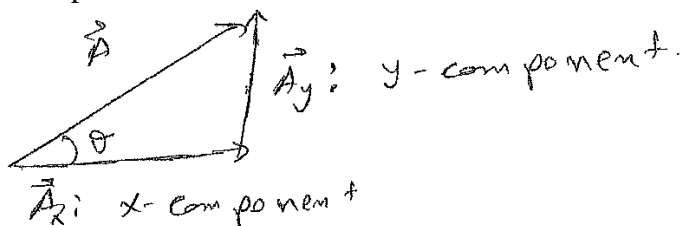 A⃗
A⃗y: y-component.
θ
A⃗x: x-component